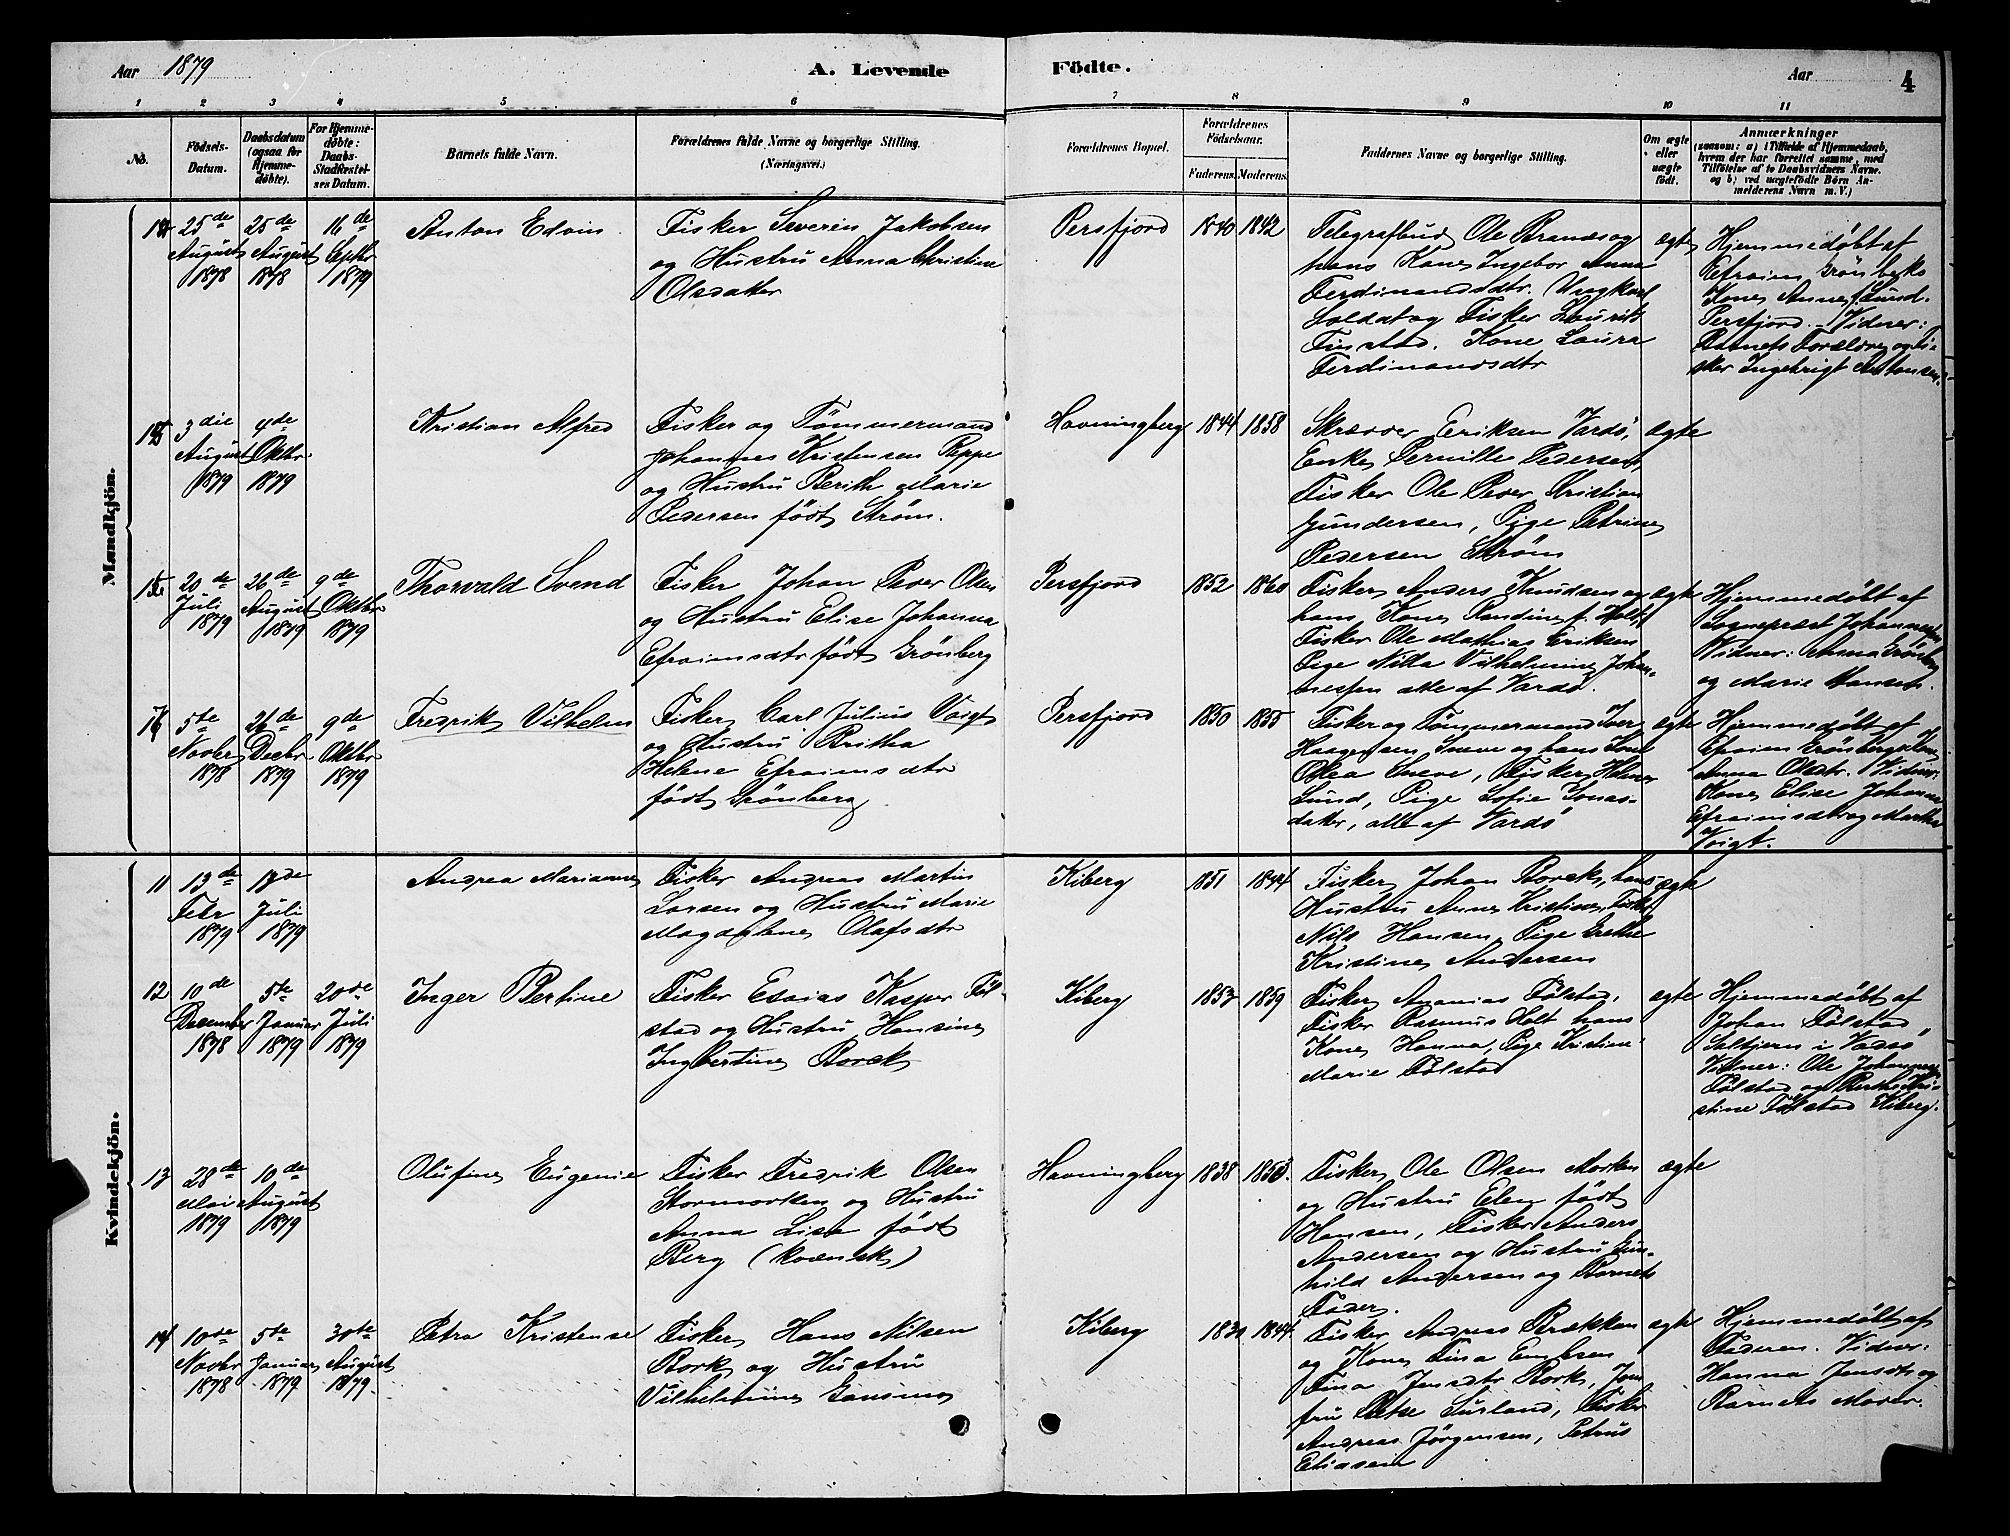 Aar 1879
A. Levende
Födte.
Aar
4
1 2 3 4 5 6 7 8 9 10 11
No.
Födsels-
Datum.
Daabsdatum
(ogsaa for
Hjemme-
döbte).
For Hjemme-
döbte:
Daabs-
Stadfæstel-
ses Datum.
Barnets fulde Navn.
Forældrenes fulde Navne og borgerlige Stilling.
(Næringsvei.)
Forældrenes Bopæl.
Forældrenes
Födselsaar.
Faderens. Moderens.
Faddernes Navne og borgerlige Stilling.
Om ægte
eller
uægte
födt.
Anmærkninger
(saasom: a) i Tilfælde af Hjemmedaab,
hvem der har forrettet samme, med
Tilföielse af to Daabsvidners Navne.
og b) ved uægtefödte Börn An-
melderens Navn m. V.)
Mandkjön.
25de August 1878
25de August 1878
16de Septbr 1879
Anton Edvin
Fisker Severin Jakobsen
og Hustru Anna Christine
Olsdatter
Persfjord
1840 1842
Telegrafbud Ole Brandsog
hans Kone Ingebor Anna
Ferdinandsdtr. Ungkarl
Soldat og Fisker Lauritz
Finstad. Kone Laura
Ferdinandsdtr
ægte
Hjemmedøbt af
Efraim Grönbergs
Kone Anne f. Lund.
Persfjord. Vidner:
Barnets Forældre og Fi-
sker Ingebrigt Antonsen.
3die August 1879
4de Oktbr 1879
Kristian Alfred
Fisker og Tömmermand
Johannes Kristensen Reppe
og Hustru Berith Marie
Pedersen født Strøm.
Havningberg
1844 1858
Skræder Eriksen Vardö,
Enke Pernille Pedersen,
Fisker Ole Peder Kristian
Gundersen, Pige Petrine
Pedersen Strøm
ægte
20de Juli 1879
26de August 1879
9de Oktbr 1879
Thorvald Svend
Fisker Johan Peder Olsen
og Hustru Elise Johanna
Efraimsdtr født Grönberg
Persfjord
1852 1860
Fisker Anders Knudsen og
hans Kone Randine f. Holst,
Fisker Ole Mathias Eriksen
Pige Nilla Vilhelmine Johan-
nesen alle af Vardö.
ægte
Hjemmedøbt af
Sogneprest Johannessen
Vidner: Anna Grönberg
og Marie Hansen.
5te Novbr 1878
26de Decbr 1879
9de Oktbr 1879
Fredrik Vilhelm
Fisker Carl Julius Voigt
og Hustru Britha
Helene Efraimsdtr
født Grönberg
Persfjord
1850 1855
Fisker og Tömmermand Iver
Haagensen Sneve og hans Kone
Olea Sneve, Fisker Helmer
Lund, Pige Sofie Jonas-
datter, alle af Vardö
ægte
Hjemmedøbt af
Efraim Grönbergs Kone
Anna Olsdtr. Vidner:
Kone Elise Johanna
Efraimsdtr og Martha
Voigt.
Kvindekjön.
11
13de Febr 1879
13de Juli 1879
Andrea Marianne
Fisker Andreas Martin
Larsen og Hustru Marie
Magdalene Olafsdtr
Kiberg
1851 1844
Fisker Johan Borch, hans
Hustru Anne Kristine, Fisker
Nils Hansen, Pige Grethe
Kristine Andersen
ægte
12
10de December 1878
5te Januar 1879
20de Juli 1879
Inger Bertine
Fisker Esaias Kasper Föl-
stad og Hustru Hansine
Ingbertine Borch
Kiberg
1853 1859
Fisker Ananias Fölstad,
Fisker Rasmus Holt hans
Kone Hanna, Pige Kristine
Marie Fölstad
ægte
Hjemmedøbt af
Johan Fölstad
Salttjern i Vadsö
Vidner: Ole Johannes
Fölstad og Berthe Kri-
stine Fölstad Kiberg.
13
28de Mai 1879
10de August 1879
Olufine Eugenie
Fisker Fredrik Olsen
Stormorken og Hustru
Anna Lisa født
Berg (kvænsk)
Havningberg
1838 1853.
Fisker Ole Olsen Morken
og Hustru Elen født
Hansen, Fisker Anders
Andersen og Hustru Gun-
hild Andersen og Barnets
Fader.
ægte
14
10de Novbr 1878
5te Januar 1879
30te August 1879.
Petra Kristense
Fisker Hans Nilsen
Bork og Hustru
Vilhelmine
Kiberg
1830 1844.
Fisker Andreas Brækkan
og Kone Fina
Fina Jensdtr Bork, Jom
fru Petre Surland, Fisker
Andreas Jørgensen, Petrus
Eliassen
ægte
Hjemmedøbt af
Faderen. Vidner:
Hanna Jensdtr og
Barnets Moder.